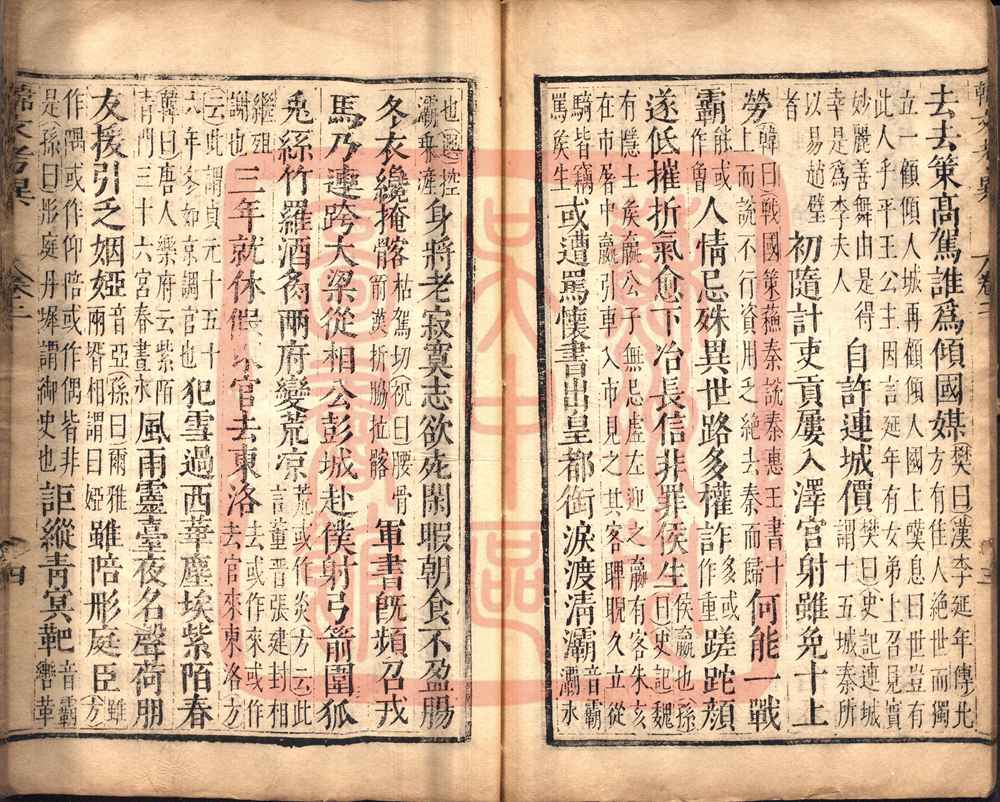 去去策高駕誰為傾國媒樊曰漢李延年傳北方有佳人絕世而獨
立一顧傾人城再顧傾人國上嘆息曰世豈有此人乎平王公主因言延年有女弟上召見實
妙麗善舞由是得幸是為李夫人自許連城價樊曰史記連城謂十五城秦所
以易趙璧者初隨計吏貢屢入澤宮射雖免十上
勞韓曰戰國策蘇秦說秦惠王書十上而說不行資用乏絕去秦而歸何能一戰
霸能或作魯人情忌殊異世路多權詐多或作重蹉跎顏
遂低摧折氣愈下冶長信非罪侯生侯嬴也孫曰史記魏
有隱士侯嬴公子無忌虛左迎之嬴有客朱亥在市屠中嬴引車入市見之其客睥睨久立從
騎皆竊罵侯生或遭罵懷書出皇都銜淚渡清灞音霸灞水
也控灞乘滻身將老寂寞志欲死閑暇朝食不盈腸
冬衣纔掩髂枯駕切祝曰腰骨箭漢折脇拉髂軍書既頻召戎
馬乃連跨大梁從相公彭城赴僕射弓箭圍狐
兔絲竹羅酒炙兩府變荒涼荒或作炎方云此言董晉張建封相
繼殂謝也三年就休假求官去東洛去或作來或作去官來東洛方
云此謂貞元十五十六年冬如京調官也犯雪過西華塵埃紫陌春
韓曰唐人樂府云紫陌青門三十六宮春晝永風雨靈臺夜名聲荷朋
友援引乏姻婭音亞孫曰爾雅兩壻相謂曰婭雖陪彤庭臣方雖
作隅或作仰陪或作偶皆非是孫曰彤庭丹墀謂御史也詎縱青冥靶音霸轡革
韓文考異 卷二
四